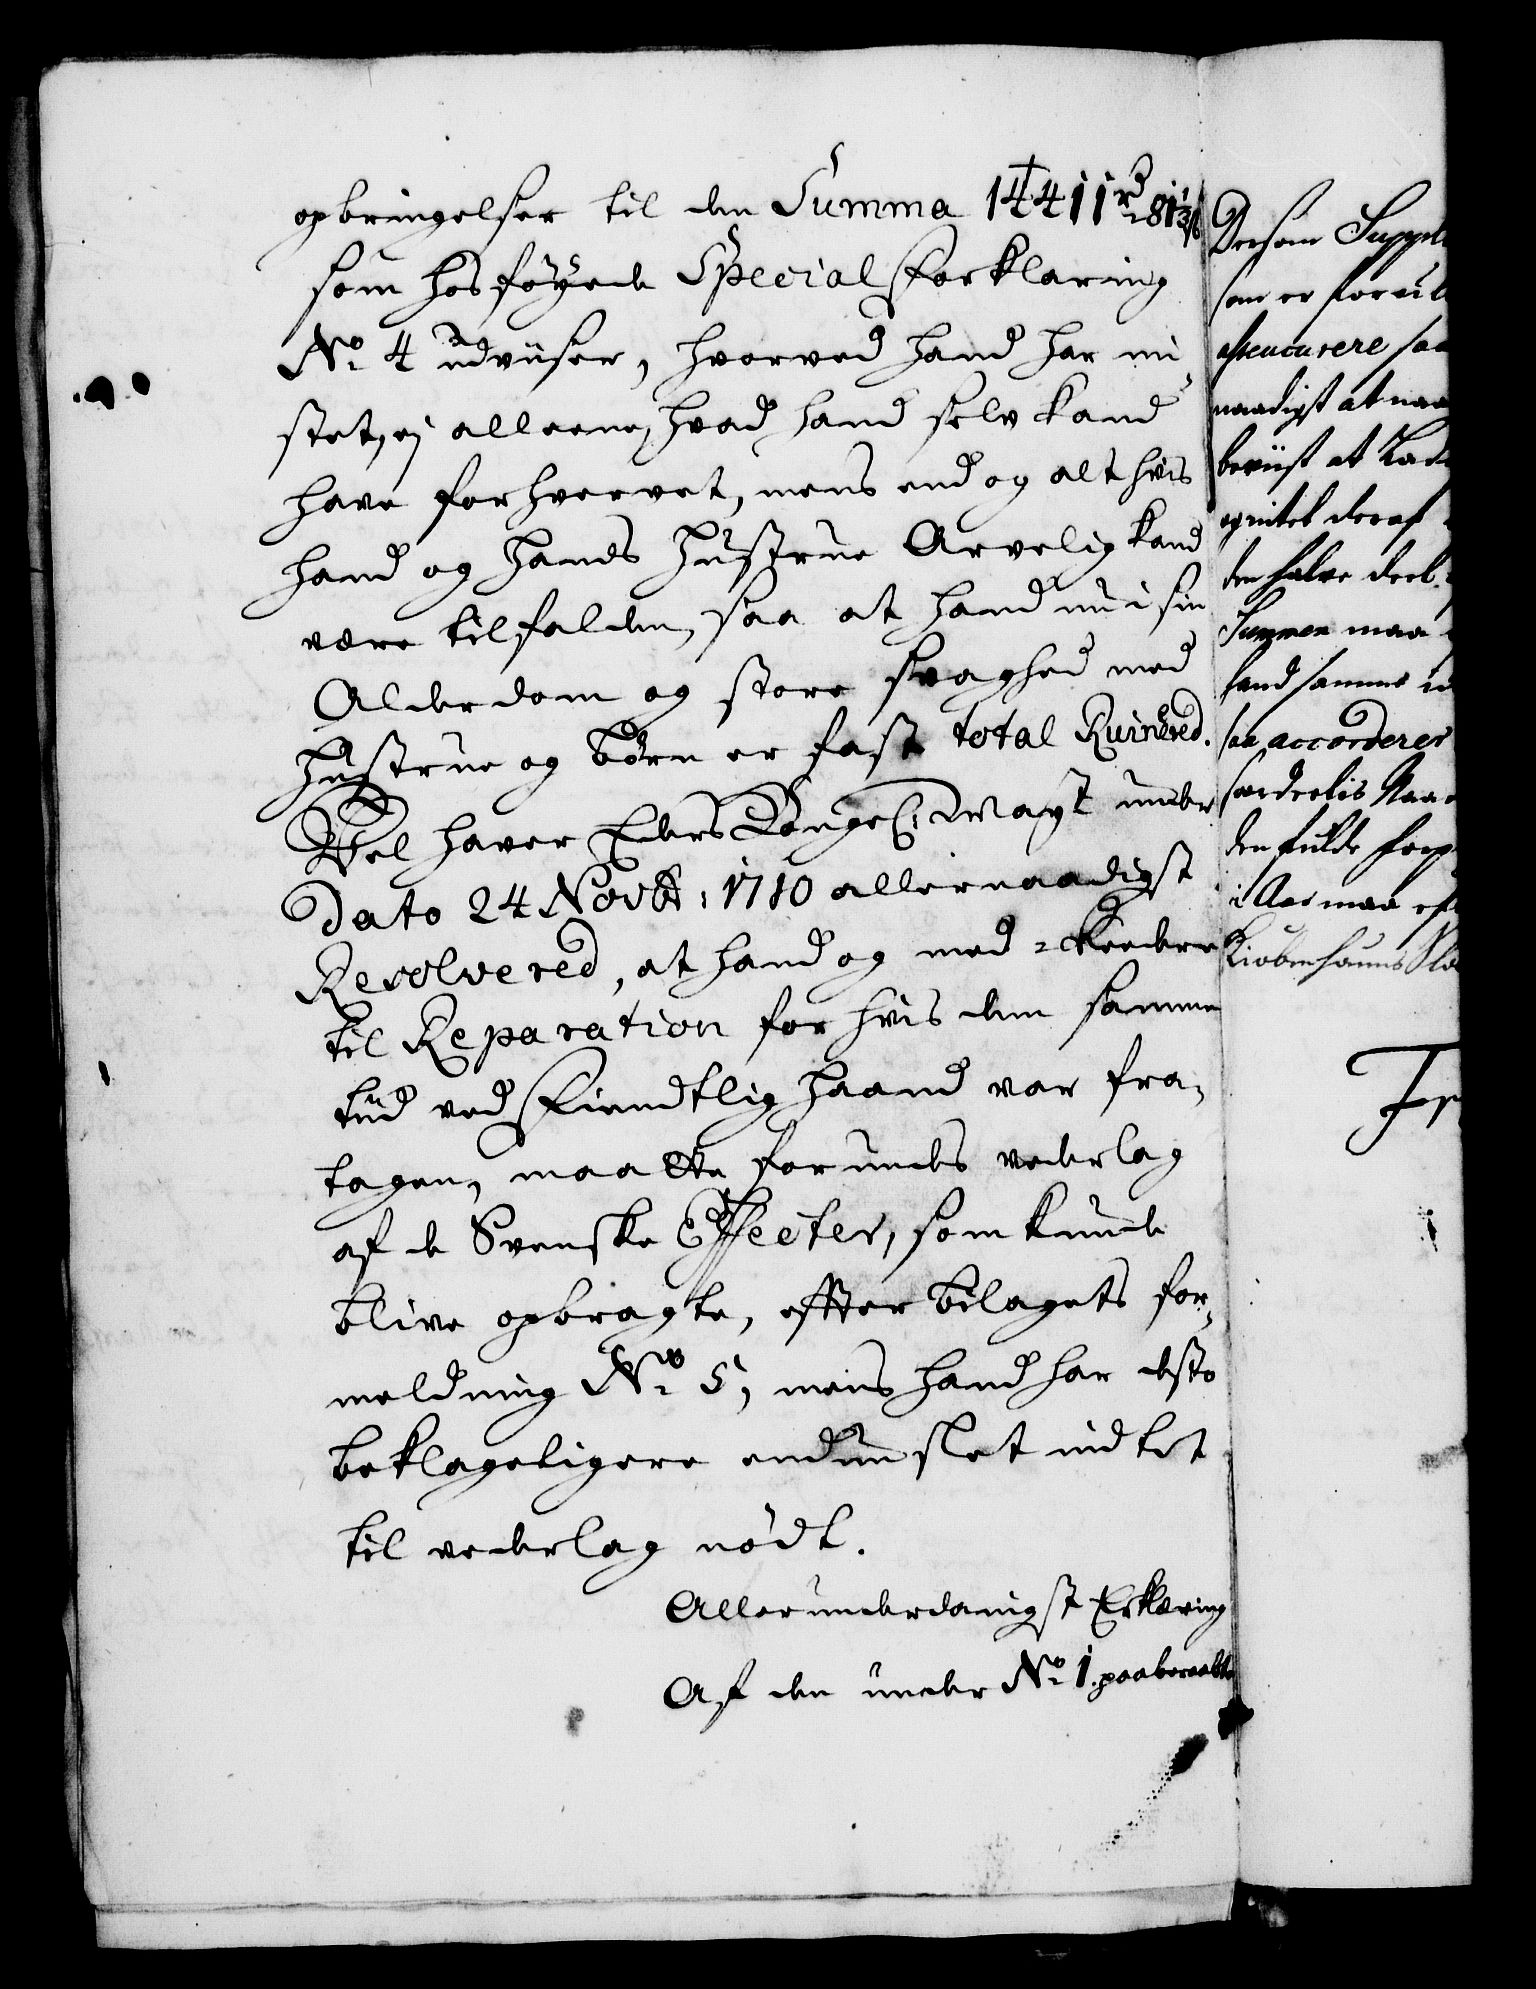 opbringelser til den Summa 14411 rd 81⅓ s
som hosføyede Special forklaring
No. 4 udviiser, hvorved hand har mi-
stet, ej alleene, hvad hand selv kand
have forhvervet, mens end og alt hvis
hand og hands Hustrue Arvelig kand
være tilfalden, saa at hand nu i sin
Alderdom og store svaghed med
Hustrue og børn er fast total Ruinered.
Vel haver Eders Kongel: Mayt under
Dato 24 Novb: 1710 allernaadigst
Resolvered, at hand og med-Reedere
til Reparation for hvis dem samme
tid ved Fiendtlig haand var fra-
tagen, maatte forundes vederlag
af de Svenske Effecter, som kunde
blive opbragte, effter bilagets for-
meldning No. 5, mens hand har desto
beklageligere endnu slet indtet
til vederlag nødt.
Allerunderdanigst Erklæring
Af den under No. 1. paaberaabte
Dersom Suppli
som er foreul
assecurere saa
naadigst at naa
beviist at Lad
opnitet deraf
den halve deel
Summen maa
hand samme
saa accorderes
særdeelis Naa
den fulde forp
i Aar maa eft
Kiøbenhauns Slo
Fr